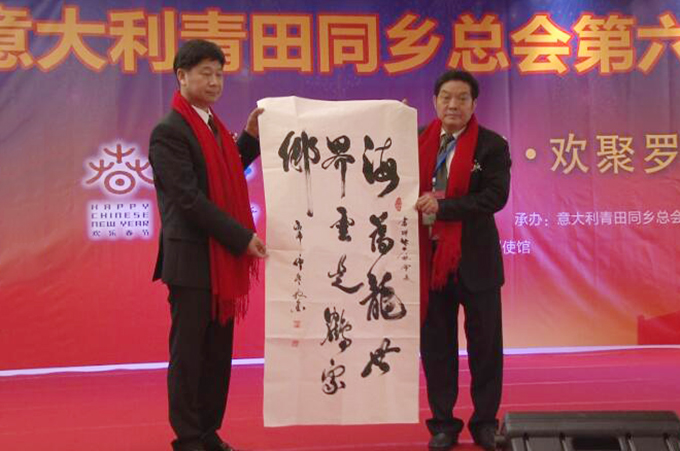 意大利青田同乡总会第六
·欢聚罗
承办：意大利青田同乡总会
使馆
HAPPY
CHINESE
NEW YEAR
欢乐春节
海為龍世
界雲是鶴家
鄉